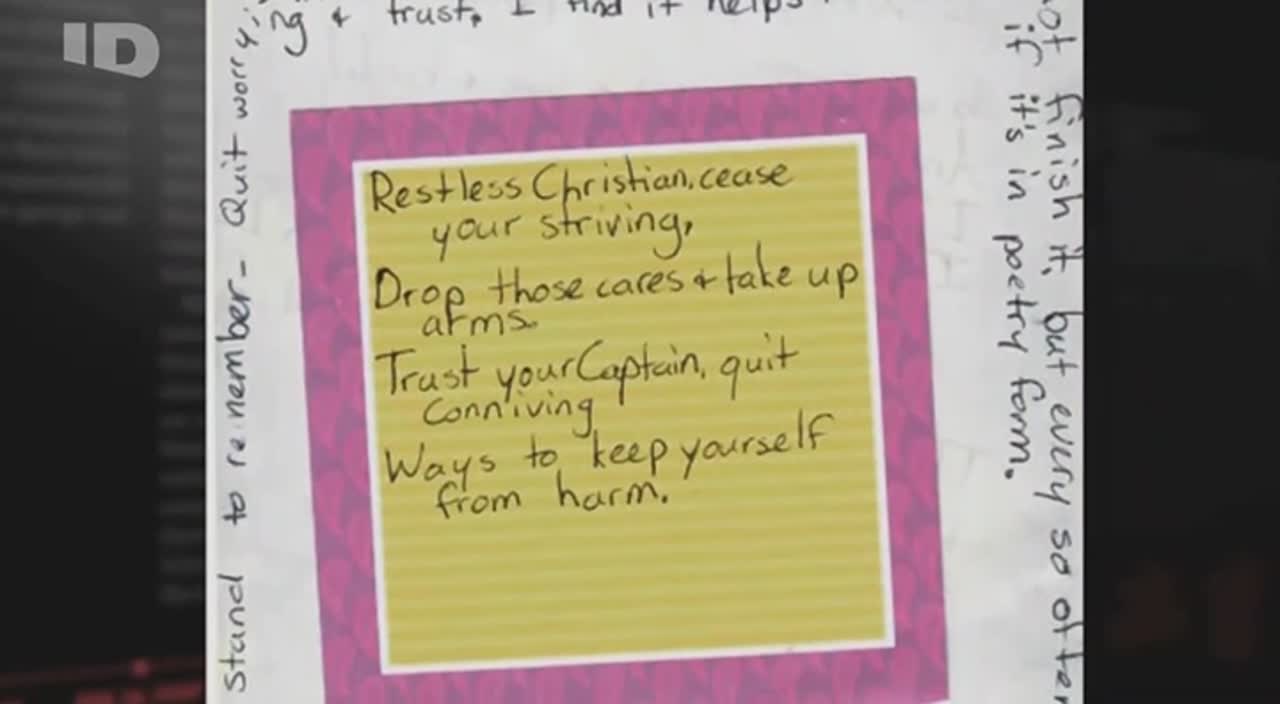 ID
& trust. I find it helps
Stand to remember - Quit worrying
Restless Christian, cease
your striving,
Drop those cares & take up
arms.
Trust your Captain, quit
conniving
Ways to keep yourself
from harm.
not finish it, but every so often
if it's in poetry form.